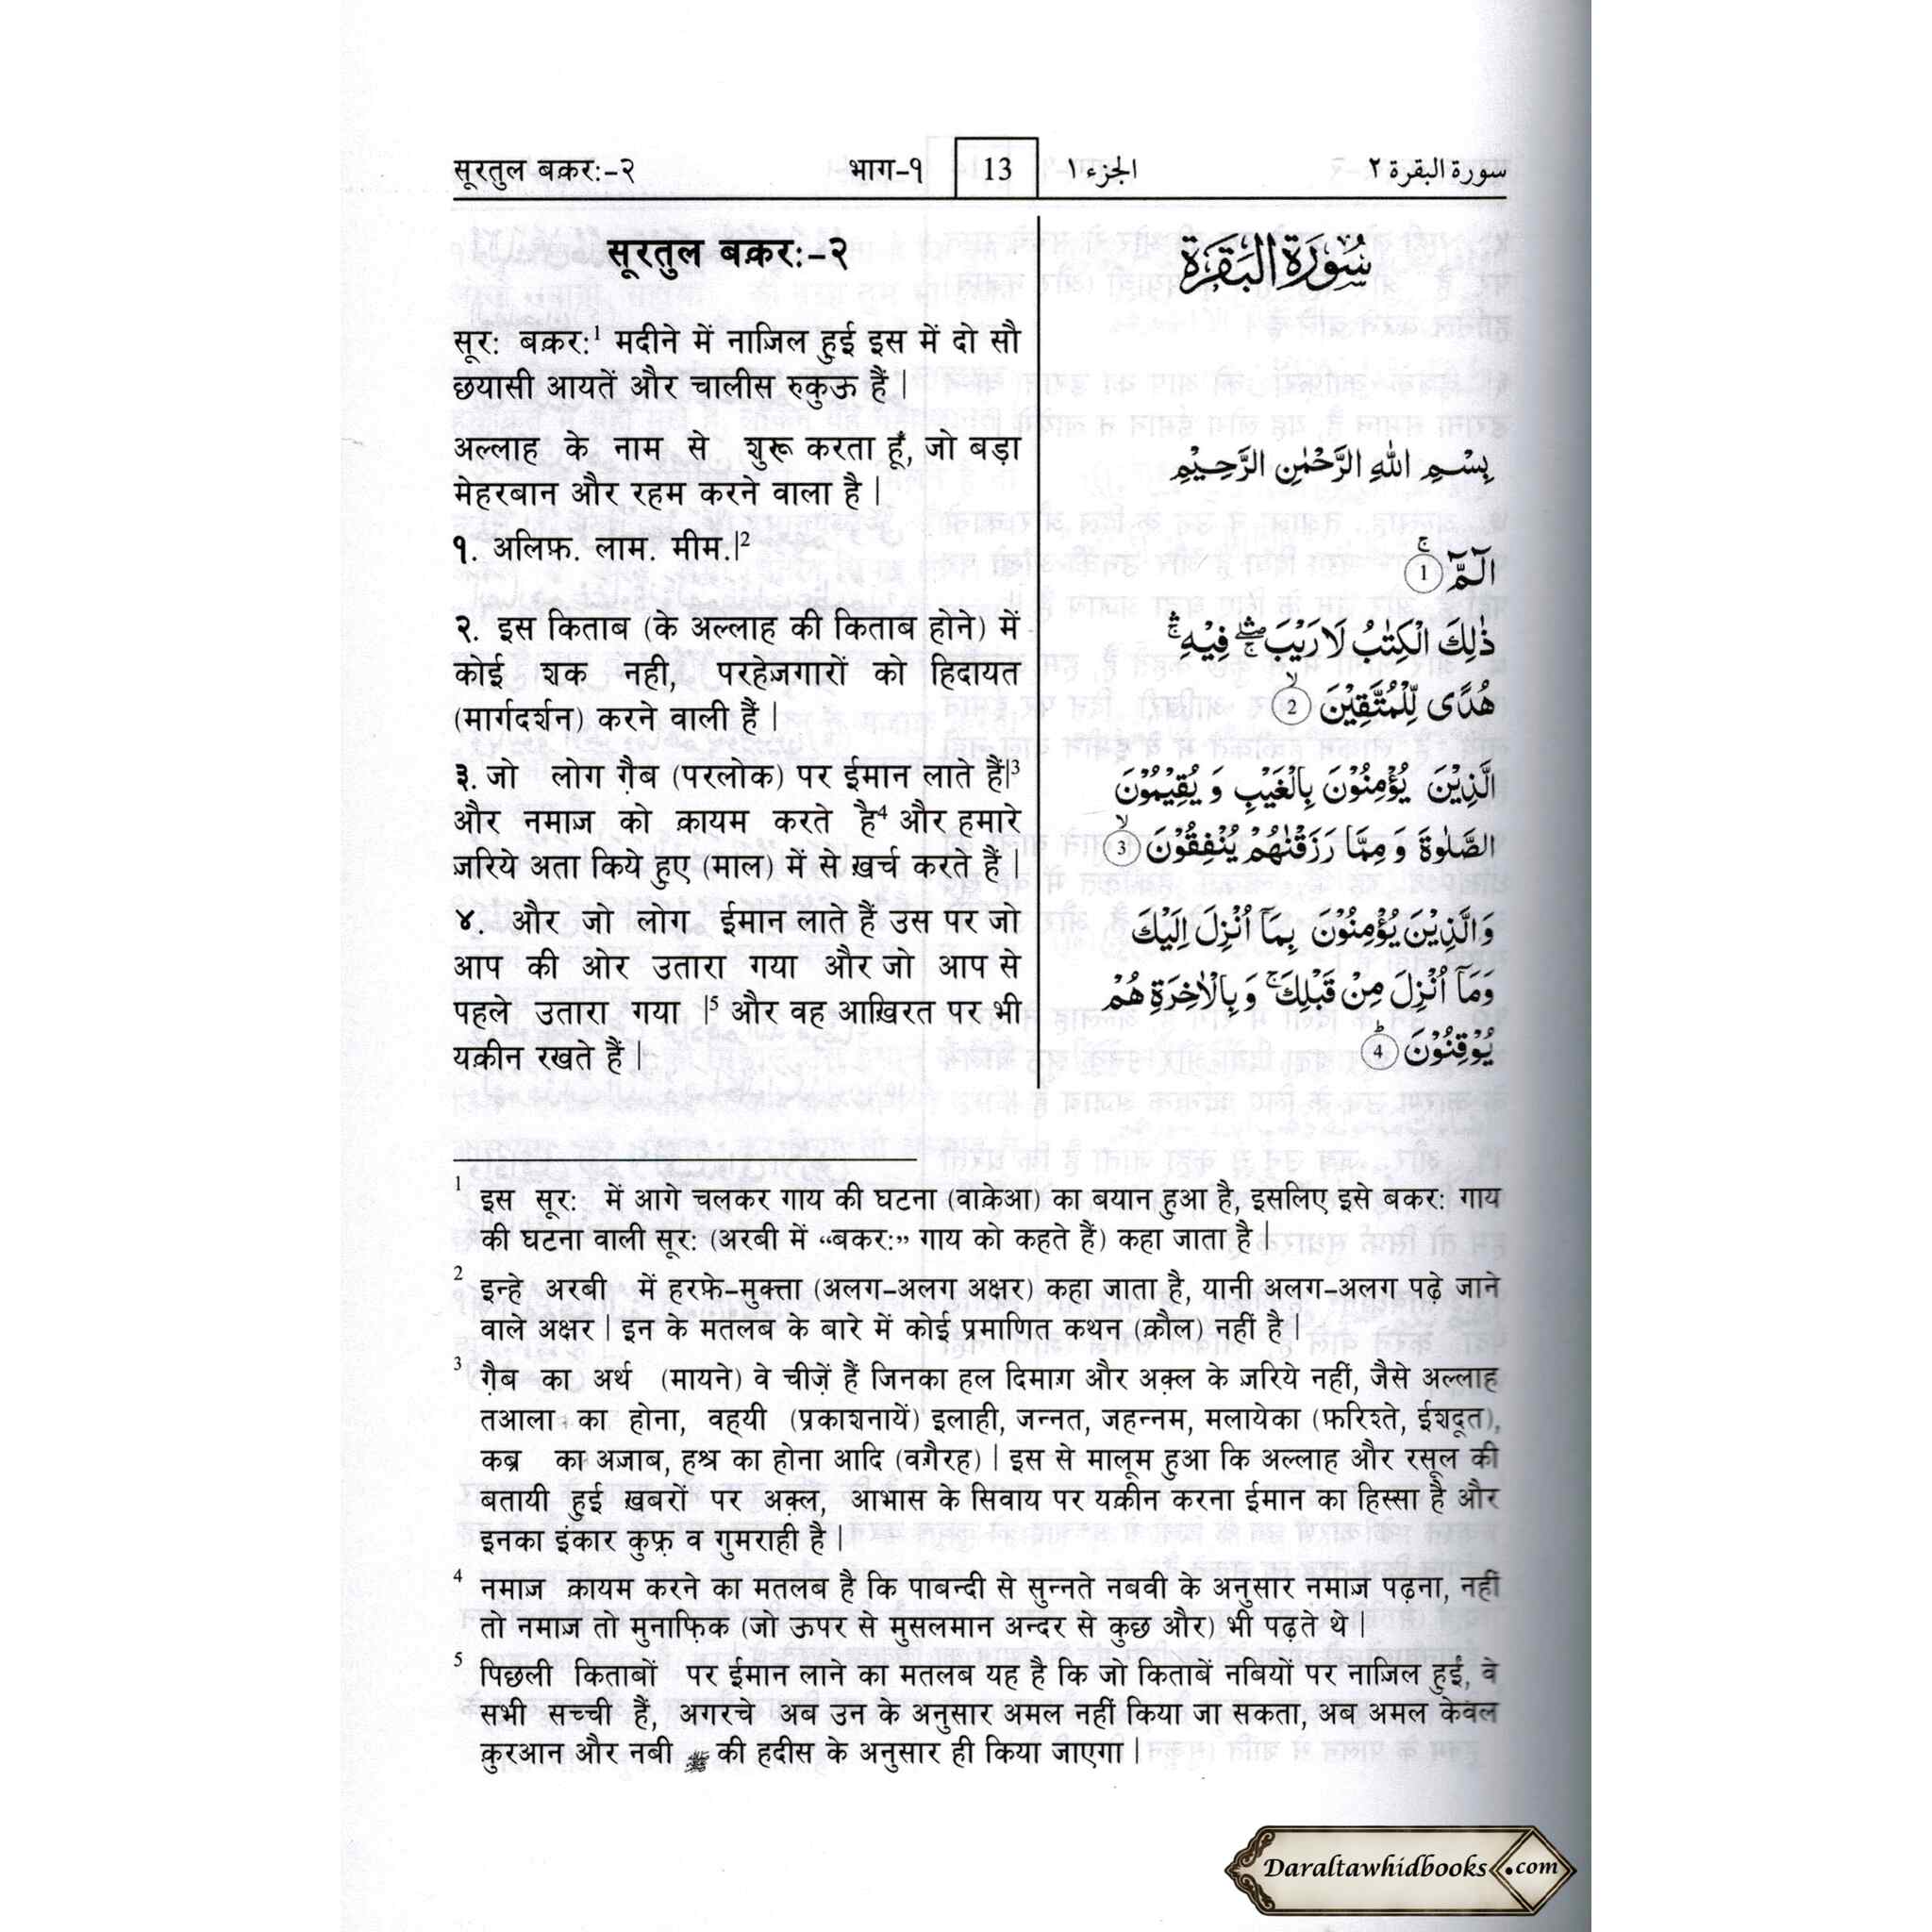 सूरतुल बक़र:-२ भाग-१ 13 الجزء ١ سورة البقرة ٢
सूरतुल बक़र:-२
सूर: बक़र:1 मदीने में नाज़िल हुई इस में दो सौ
छयासी आयतें और चालीस रुकुऊ हैं |
अल्लाह के नाम से शुरू करता हूँ, जो बड़ा
मेहरबान और रहम करने वाला है |
१. अलिफ़. लाम. मीम.|2
२. इस किताब (के अल्लाह की किताब होने) में
कोई शक नही, परहेज़गारों को हिदायत
(मार्गदर्शन) करने वाली हैं |
३. जो लोग ग़ैब (परलोक) पर ईमान लाते हैं|3
और नमाज़ को क़ायम करते है4 और हमारे
ज़रिये अता किये हुए (माल) में से ख़र्च करते हैं |
४. और जो लोग ईमान लाते हैं उस पर जो
आप की ओर उतारा गया और जो आप से
पहले उतारा गया |5 और वह आख़िरत पर भी
यक़ीन रखते हैं |
سُوْرَةُ الْبَقَرَةِ
بِسْمِ اللهِ الرَّحْمٰنِ الرَّحِيْمِ
الٓمّٓ ۚ 1
ذٰلِكَ الْكِتٰبُ لَا رَيْبَ ۛۖ فِيْهِ ۛۚ
هُدًى لِّلْمُتَّقِيْنَ ۙ 2
الَّذِيْنَ يُؤْمِنُوْنَ بِالْغَيْبِ وَ يُقِيْمُوْنَ
الصَّلٰوةَ وَ مِمَّا رَزَقْنٰهُمْ يُنْفِقُوْنَ ۙ 3
وَالَّذِيْنَ يُؤْمِنُوْنَ بِمَآ اُنْزِلَ اِلَيْكَ
وَمَآ اُنْزِلَ مِنْ قَبْلِكَ ۚ وَبِالْاٰخِرَةِ هُمْ
يُوْقِنُوْنَ ؕ 4
1 इस सूर: में आगे चलकर गाय की घटना (वाक़ेआ) का बयान हुआ है, इसलिए इसे बकर: गाय
की घटना वाली सूर: (अरबी में “बकर:” गाय को कहते हैं) कहा जाता है |
2 इन्हे अरबी में हरफ़े-मुक्त्ता (अलग-अलग अक्षर) कहा जाता है, यानी अलग-अलग पढ़े जाने
वाले अक्षर | इन के मतलब के बारे में कोई प्रमाणित कथन (क़ौल) नहीं है |
3 ग़ैब का अर्थ (मायने) वे चीज़ें हैं जिनका हल दिमाग़ और अक़्ल के ज़रिये नहीं, जैसे अल्लाह
तआला का होना, वह्‌यी (प्रकाशनायें) इलाही, जन्नत, जहन्नम, मलायेका (फ़रिश्ते, ईशदूत),
कब्र का अज़ाब, हश्र का होना आदि (वग़ैरह) | इस से मालूम हुआ कि अल्लाह और रसूल की
बतायी हुई ख़बरों पर अक़्ल, आभास के सिवाय पर यक़ीन करना ईमान का हिस्सा है और
इनका इंकार कुफ़्र व गुमराही है |
4 नमाज़ क़ायम करने का मतलब है कि पाबन्दी से सुन्नते नबवी के अनुसार नमाज़ पढ़ना, नहीं
तो नमाज़ तो मुनाफ़िक़ (जो ऊपर से मुसलमान अन्दर से कुछ और) भी पढ़ते थे |
5 पिछली किताबों पर ईमान लाने का मतलब यह है कि जो किताबें नबियों पर नाज़िल हुईं, वे
सभी सच्ची हैं, अगरचे अब उन के अनुसार अमल नहीं किया जा सकता, अब अमल केवल
क़ुरआन और नबी ﷺ की हदीस के अनुसार ही किया जाएगा |
Daraltawhidbooks.com